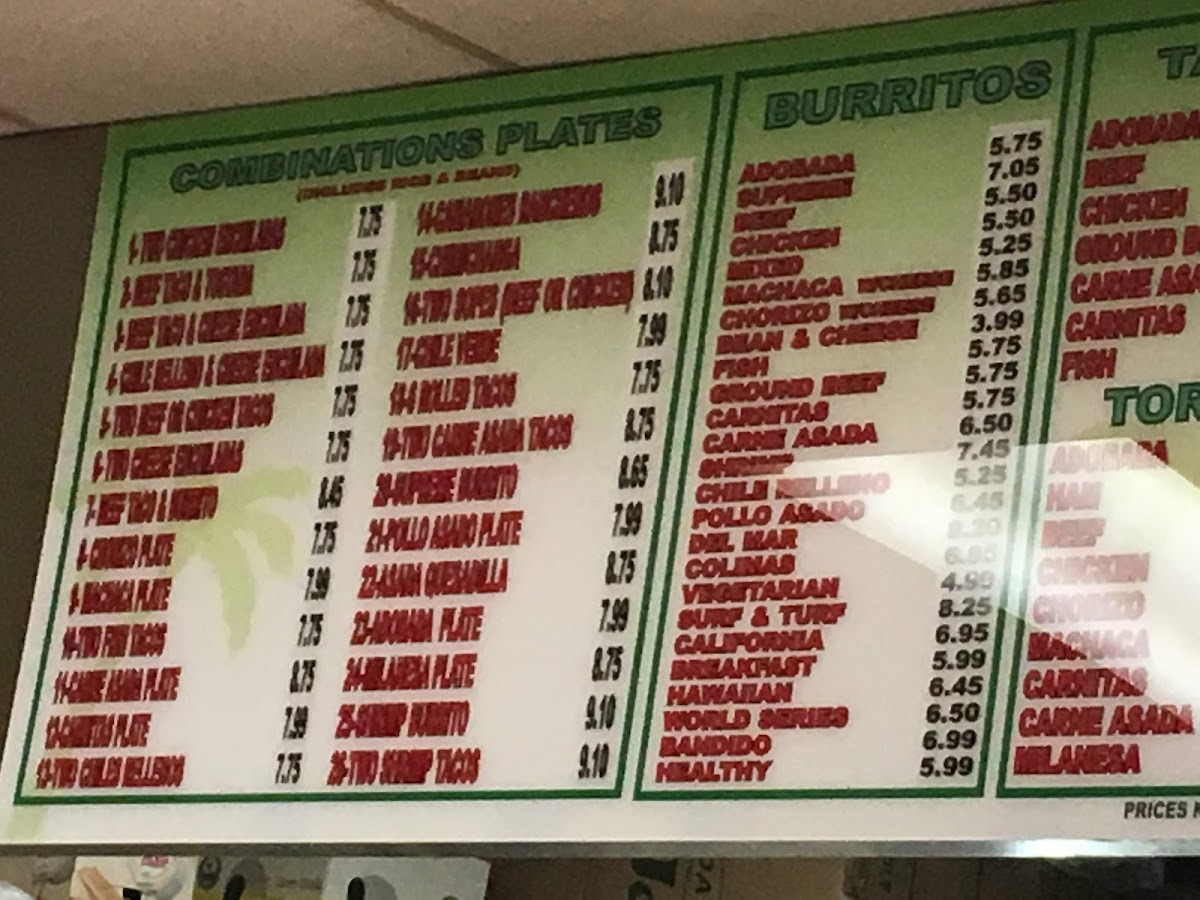 COMBINATIONS PLATES
(INCLUDES RICE & BEANS)
1- TWO CHICKEN ENCHILADAS 7.75
2- BEEF TACO & TOSTADA 7.75
3- BEEF TACO & CHEESE ENCHILADA 7.75
4- CHILE RELLENO & CHEESE ENCHILADA 7.75
5- TWO BEEF OR CHICKEN TACOS 7.75
6- TWO CHEESE ENCHILADAS 7.75
7- BEEF TACO & BURRITO 8.45
8- CHORIZO PLATE 7.75
9- MACHACA PLATE 7.99
10-TWO FISH TACOS 7.75
11-CARNE ASADA PLATE 8.75
12-CARNITAS PLATE 7.99
13-TWO CHILES RELLENOS 7.75
14-CAMARONES RANCHEROS 9.10
15-CHIMICHANGA 8.75
16-TWO SOPES (BEEF OR CHICKEN) 8.10
17-CHILE VERDE 7.99
18-6 ROLLED TACOS 7.75
19-TWO CARNE ASADA TACOS 8.75
20-SUPREME BURRITO 8.65
21-POLLO ASADO PLATE 7.99
22-ASADA QUESADILLA 8.75
23-ADOBADA PLATE 7.99
24-MILANESA PLATE 8.75
25-SHRIMP BURRITO 9.10
26-TWO SHRIMP TACOS 9.10
BURRITOS
ADOBADA 5.75
SUPREME 7.05
BEEF 5.50
CHICKEN 5.50
MIXED 5.25
MACHACA W/ 5.85
CHORIZO W/ 5.65
BEAN & CHEESE 3.99
FISH 5.75
GROUND BEEF 5.75
CARNITAS 5.75
CARNE ASADA 6.50
SHRIMP 7.45
CHILE RELLENO 5.25
POLLO ASADO 6.45
DEL MAR
COLINAS 6.95
VEGETARIAN 4.99
SURF & TURF 8.25
CALIFORNIA 6.95
BREAKFAST 5.99
HAWAIIAN 6.45
WORLD SERIES 6.50
BANDIDO 6.99
HEALTHY 5.99
TA
ADOBADA
BEEF
CHICKEN
GROUND B
CARNE ASA
CARNITAS
FISH
TOR
ADOBADA
HAM
BEEF
CHICKEN
CHORIZO
MACHACA
CARNITAS
CARNE ASADA
MILANESA
PRICES